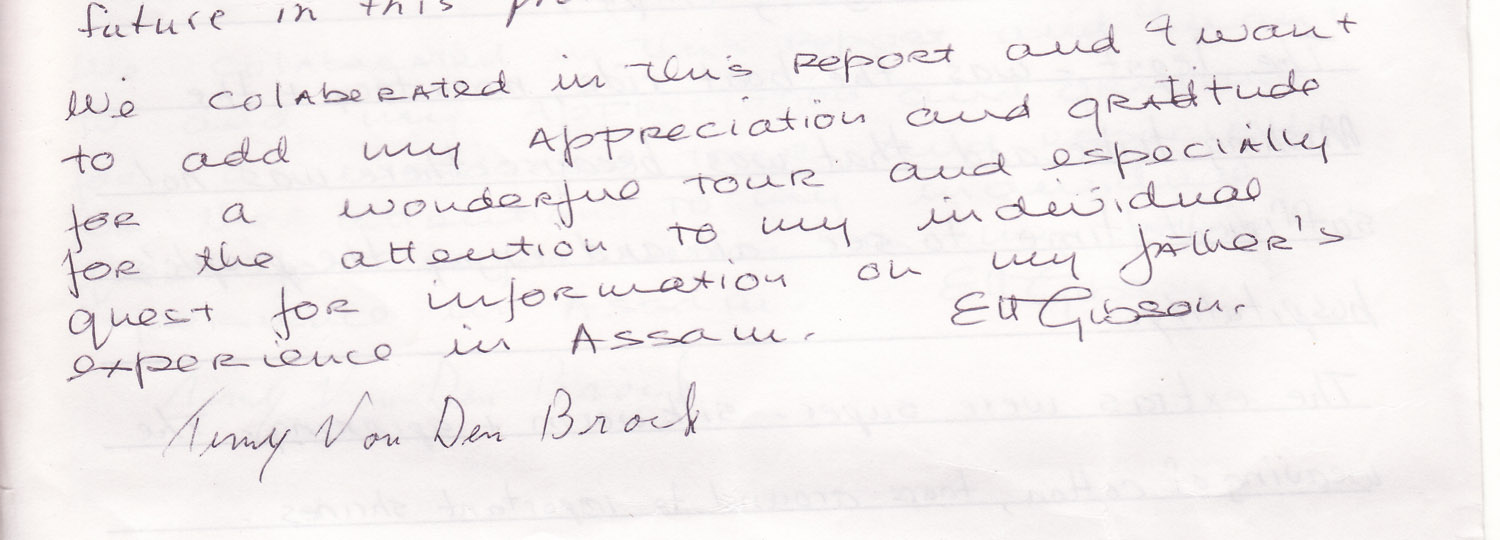 future in this
We colaberated in this report and I want
to add my appreciation and gratitude
for a wonderful tour and especially
for the attention to my individual
quest for information on my father's
experience in Assam. Gibson.
Von Den Brock